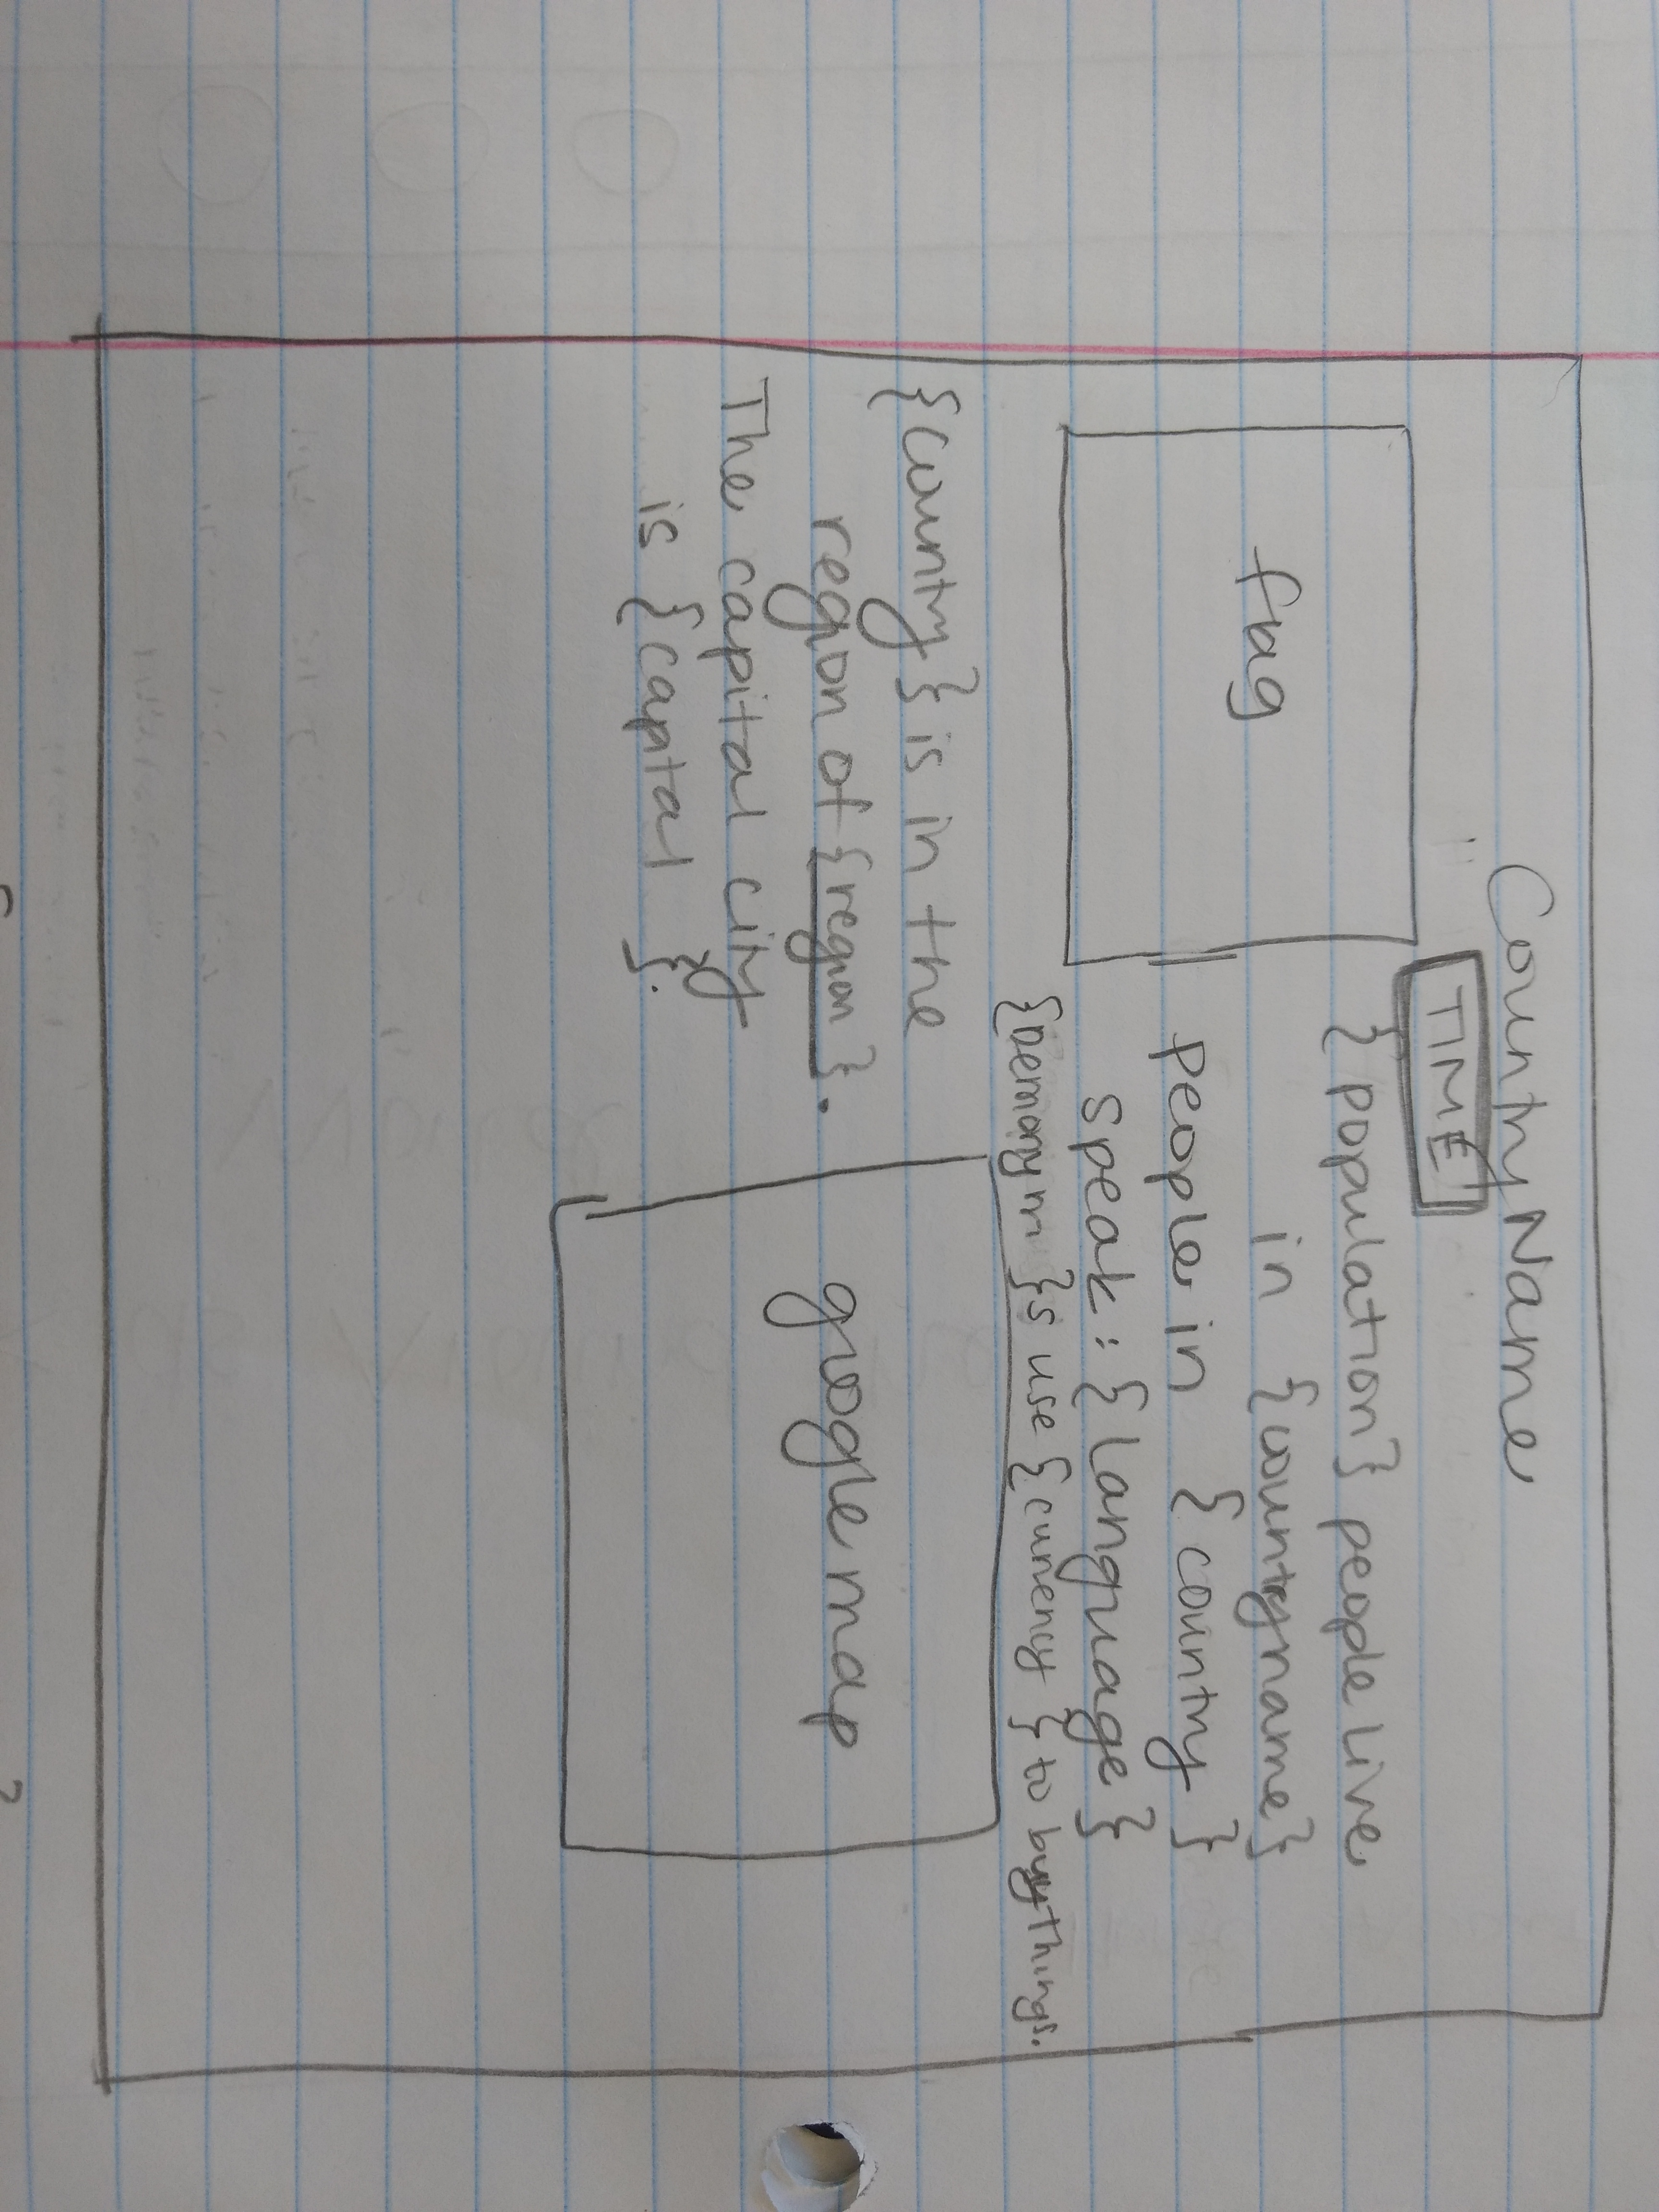 Country Name
TIME
flag
{population} people live
in {countryname}
people in {country}
speak: {language}
{Demonym}s use {currency} to buy things.
{country} is in the
region of {region}.
The capital city
is {capital}.
google map